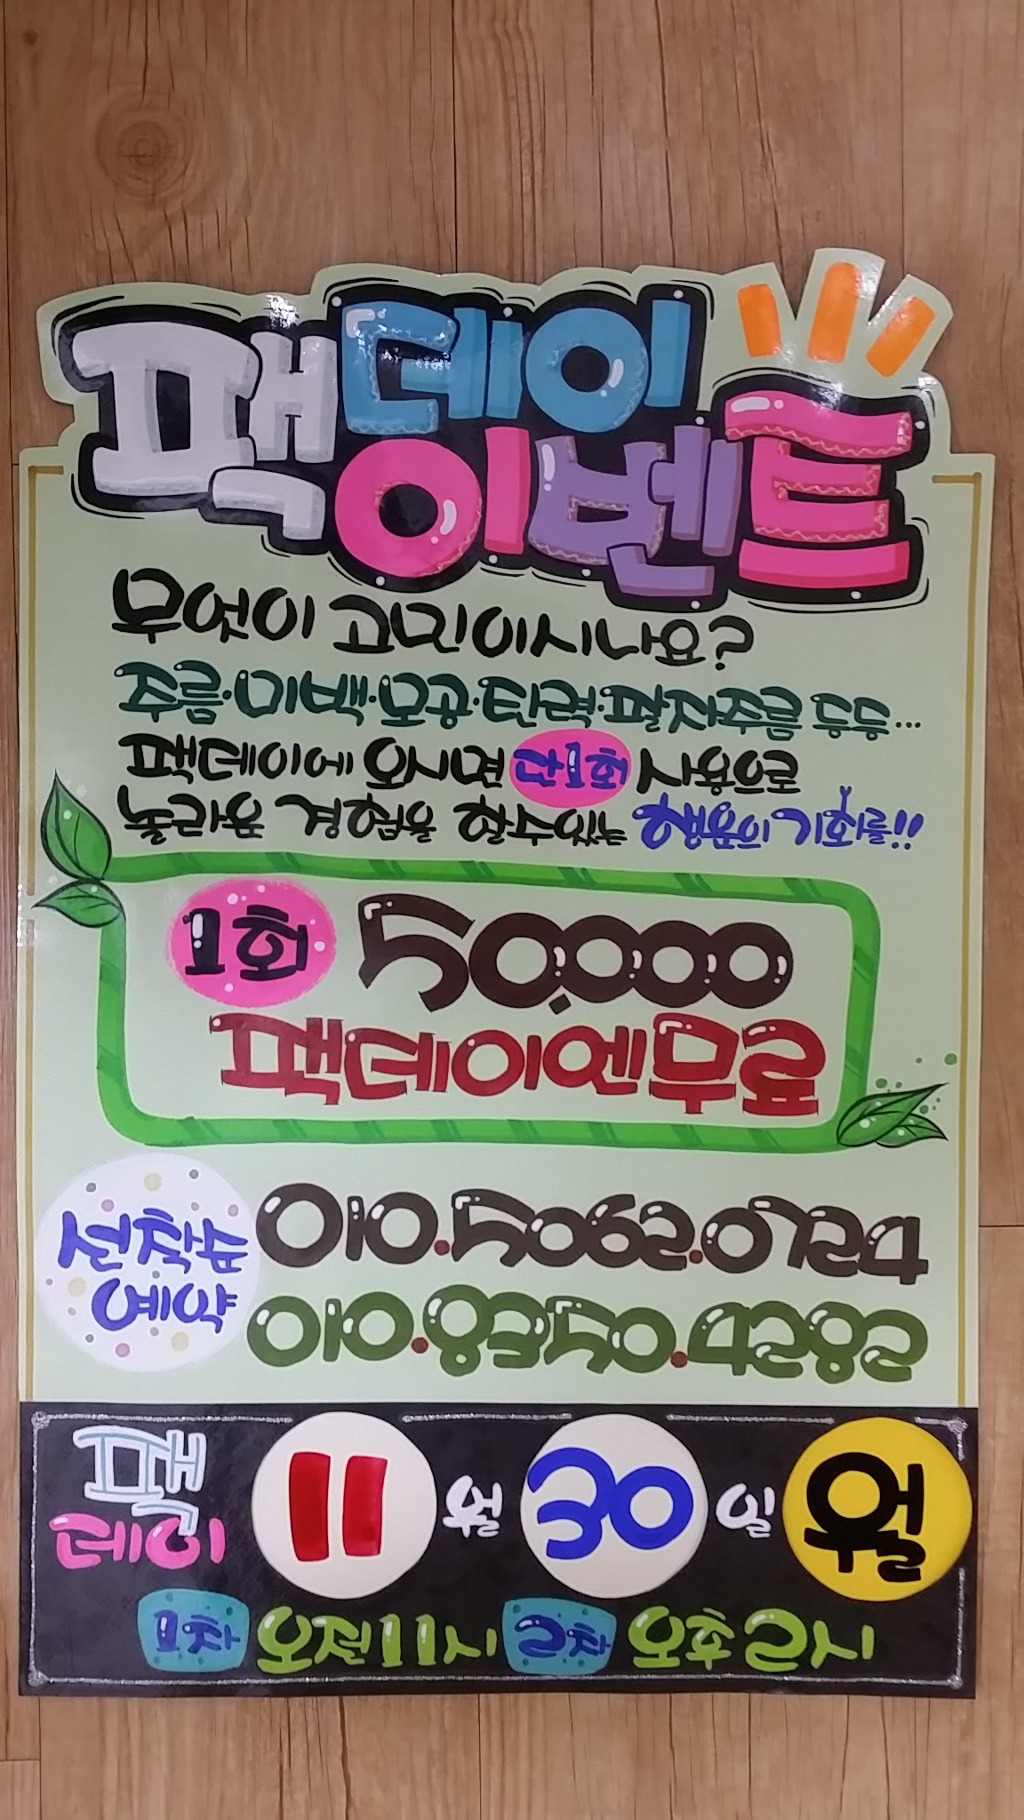 팩데이
이벤트
무엇이 고민이시나요?
주름·미백·모공·탄력·팔자주름 등등...
팩데이에 오시면 단1회 사용으로
놀라운 경험을 할수있는 행운의 기회를!!
1회 50,000
팩데이엔무료
선착순 예약
010.5062.0724
010.8350.4282
팩데이 11월 30일 월
1차 오전11시 2차 오후2시